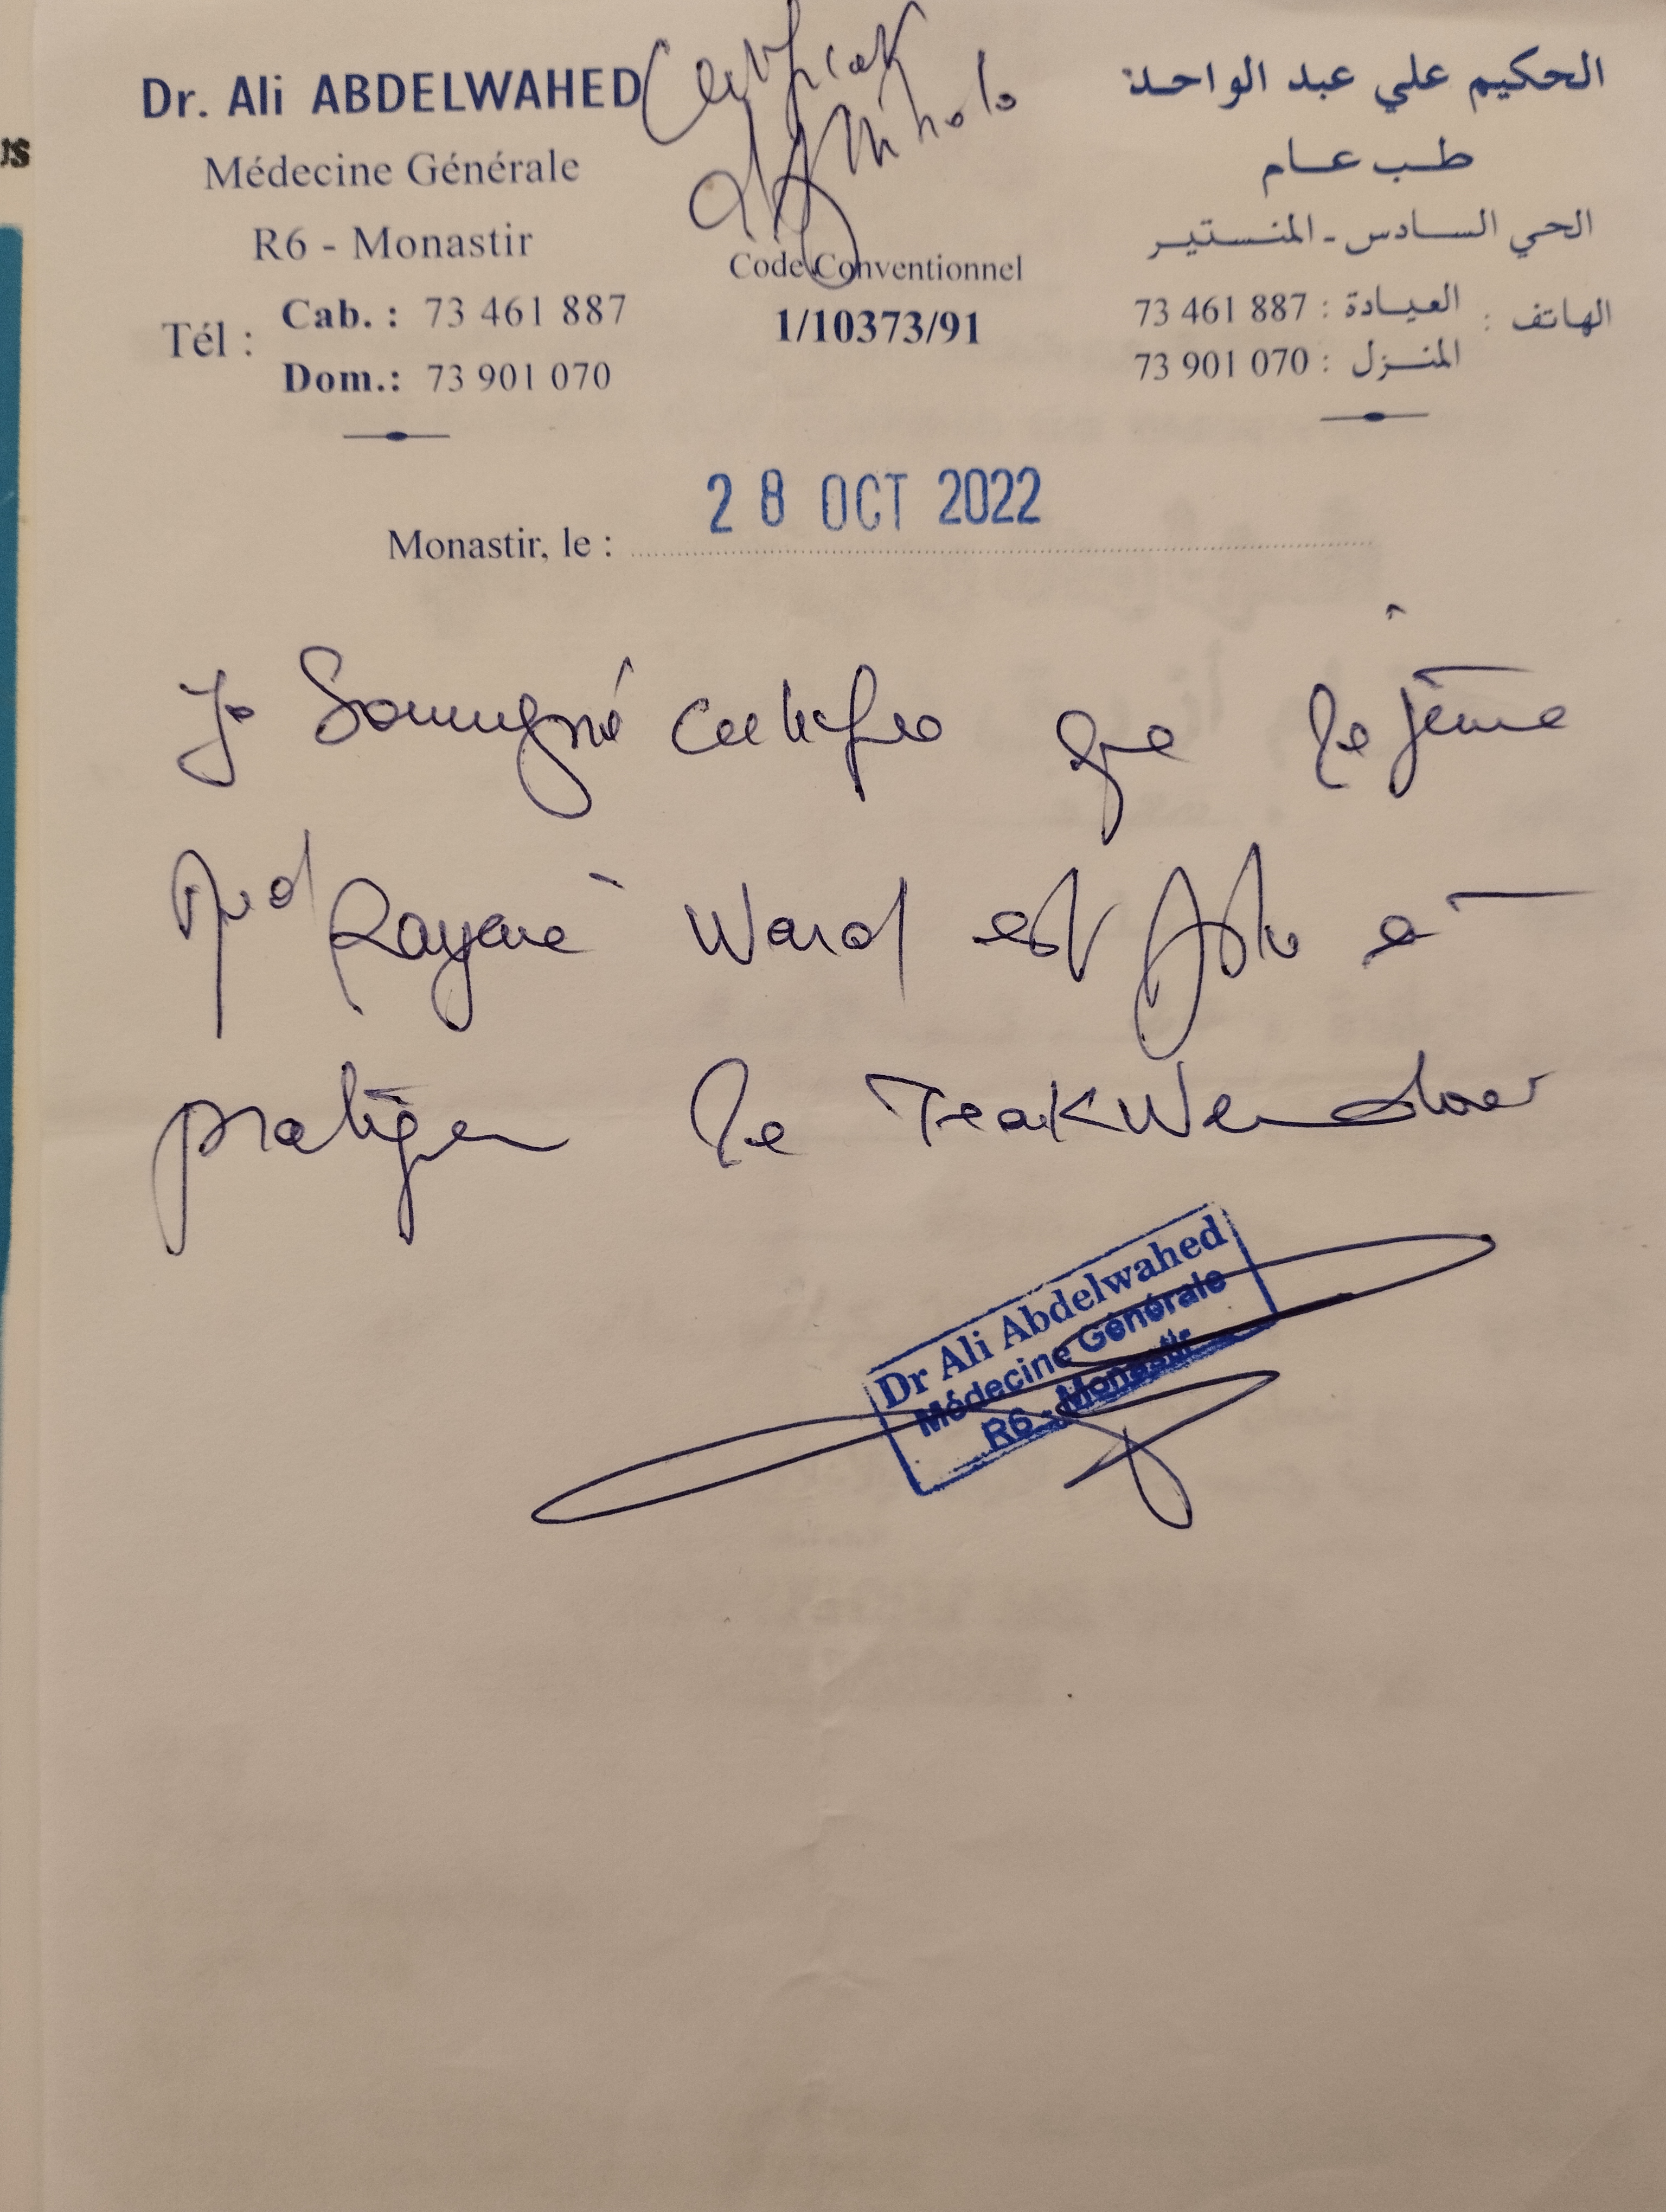 us
Certificat
d'Aptitude
Dr. Ali ABDELWAHED
Médecine Générale
R6 - Monastir
Tél :
Cab. : 73 461 887
Dom.: 73 901 070
Code Conventionnel
1/10373/91
الحكيم علي عبد الواحد
طب عام
الحي السادس - المنستير
الهاتف :
العيادة : 73 461 887
المنزل : 73 901 070
Monastir, le : 28 OCT 2022
Je Soussigné certifie que le jeune
Med Rayane Ward est Apte à
pratiquer le Teakwendoer
Dr Ali Abdelwahed
Médecine Générale
R6 - Monastir